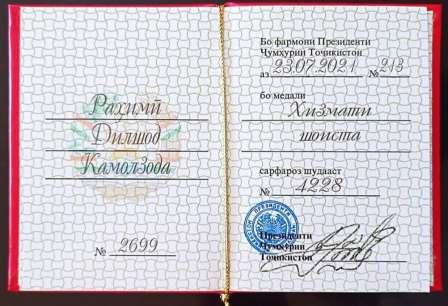 Раҳимӣ
Дилшод
Камолзода
№ 2699
Бо фармони Президенти
Ҷумҳурии Тоҷикистон
аз 23.07.2021 № 213
бо медали
Хизмати
шоиста
сарфароз шудааст
№ 4228
Президенти
Ҷумҳурии
Тоҷикистон